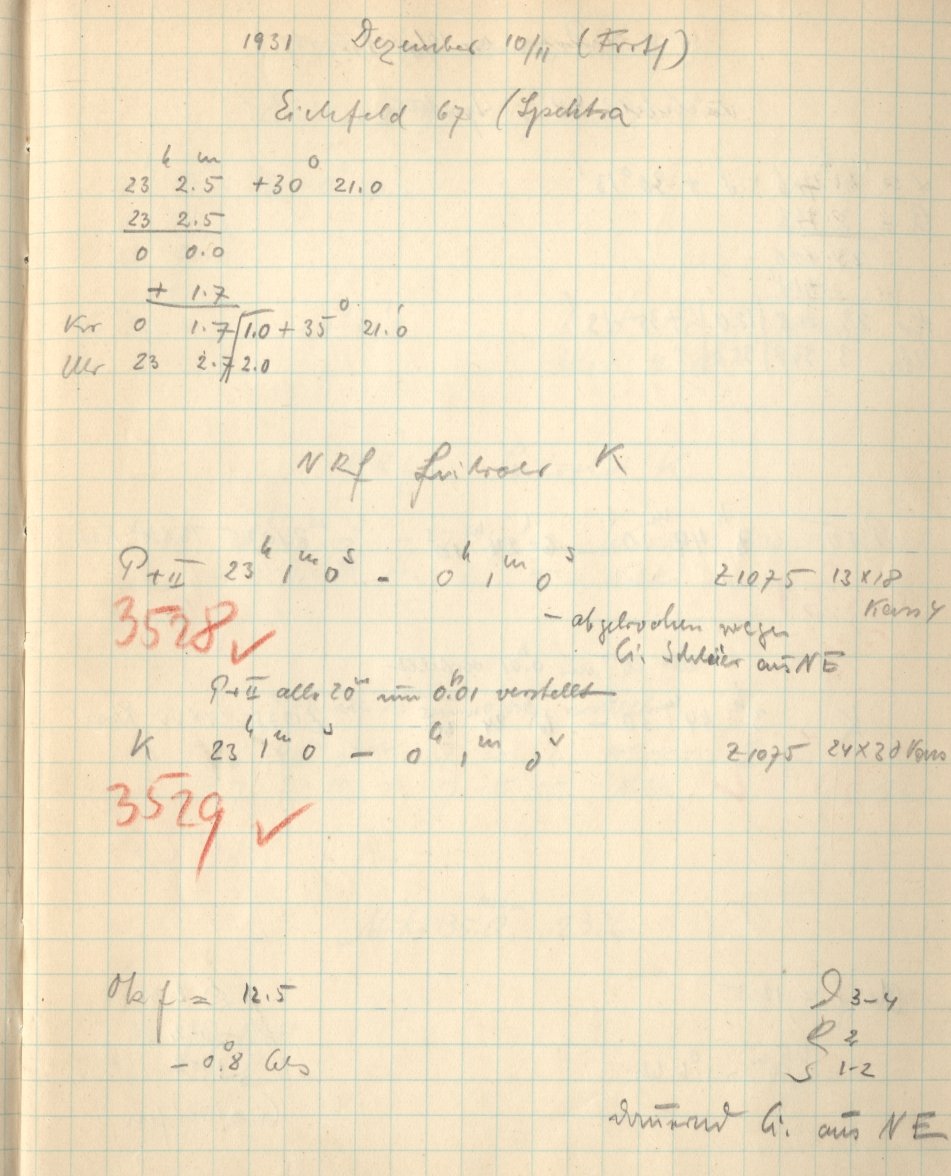 1931 Dezember 10/11
Eichfeld 67 (Spektra
h m o
23 2.5 +30 21.0
23 2.5
0 0.0
+ 1.7
0 1.7 1.0 + 35° 21.0
Uhr 23 2.7 2.0
K
P+II 23h 1m 0s - 0h 1m 0s Z1075 13x18
3528 ✓
- abgebrochen wegen
Ci. Schleier aus NE
P+II alle 20m um 0.01 verstellt
K 23h 1m 0s - 0h 1m 0s Z1075 24x30
3529 ✓
Ok f = 12.5
3-4
- 0.°8 Cels
R 2
S 1-2
dauernd Ci. aus NE